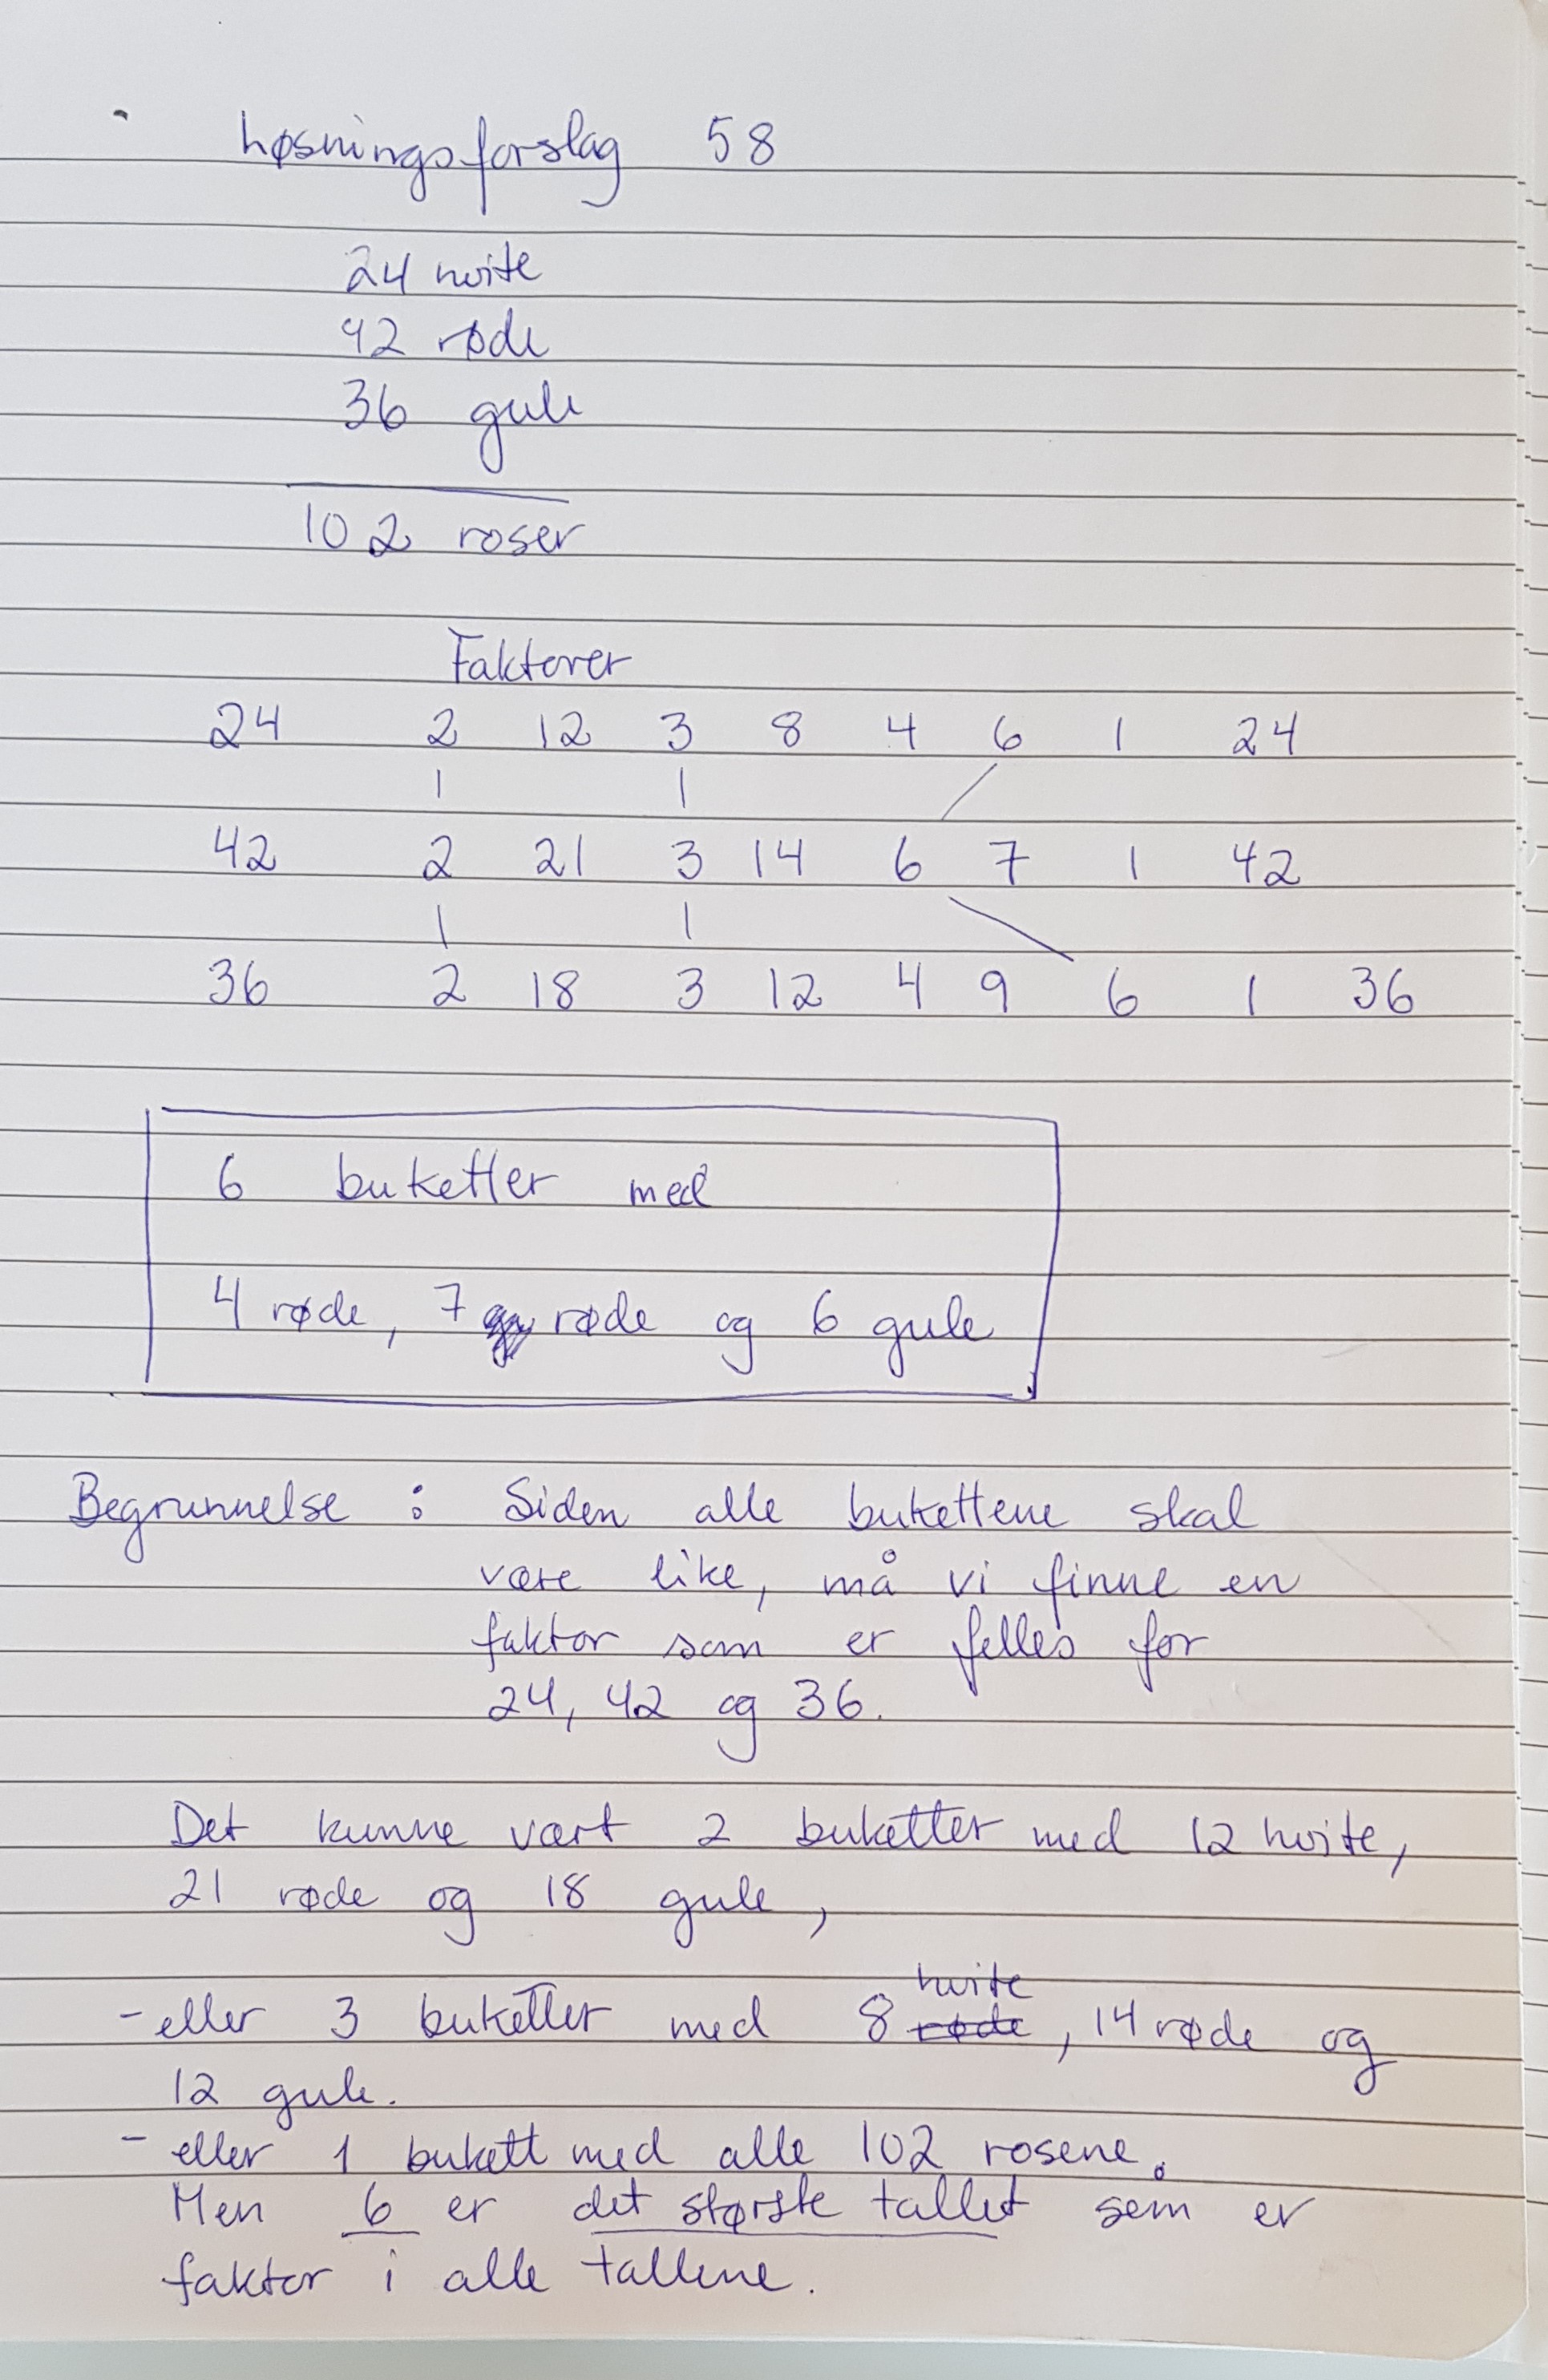 Løsningsforslag 58
24 hvite
42 røde
36 gule
102 roser
Faktorer
24 2 12 3 8 4 6 1 24
42 2 21 3 14 6 7 1 42
36 2 18 3 12 4 9 6 1 36
6 buketter med
4 røde, 7 røde og 6 gule
Begrunnelse : Siden alle bukettene skal
være like, må vi finne en
faktor som er felles for
24, 42 og 36.
Det kunne vært 2 buketter med 12 hvite,
21 røde og 18 gule,
hvite
- eller 3 buketter med 8 røde, 14 røde og
12 gule.
- eller 1 bukett med alle 102 rosene.
Men 6 er det største tallet som er
faktor i alle tallene.